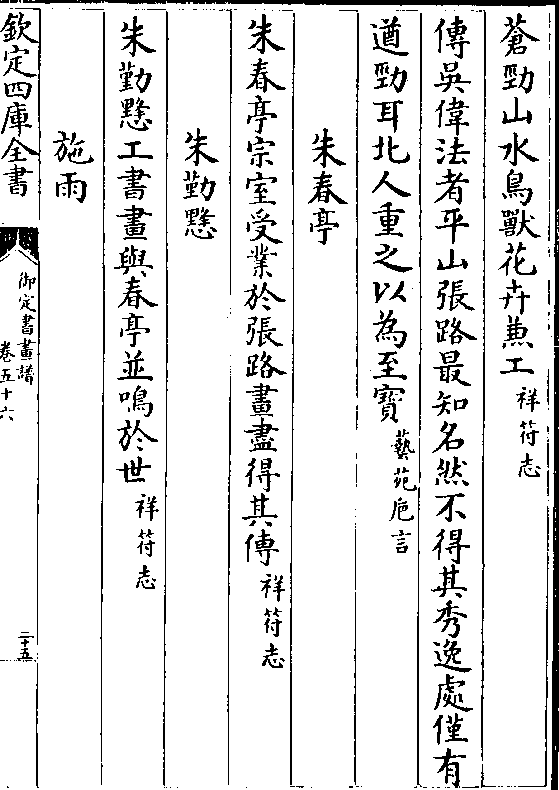 蒼勁山水鳥獸花卉兼工祥符志
傳吳偉法者平山張路最知名然不得其秀逸處僅有
遒勁耳北人重之以為至寳藝苑巵言
朱春亭
朱春亭宗室受業於張路畫盡得其傳祥符志
朱勤㸅
朱勤㸅工書畫與春亭並鳴於世祥符志
施雨
欽定四庫全書
御定書畫譜
卷五十六
二十五